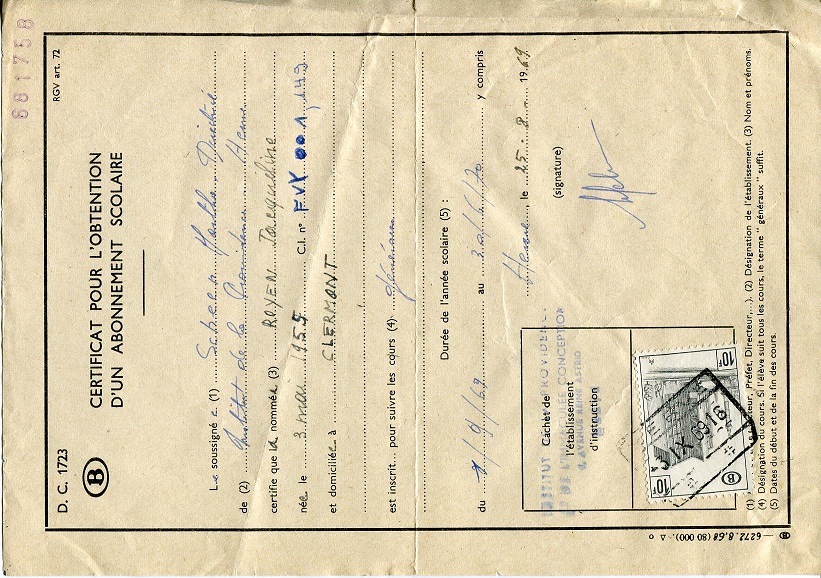 681758
D. C. 1723
RGV art. 72
B
CERTIFICAT POUR L'OBTENTION
D'UN ABONNEMENT SCOLAIRE
L e soussigné e (1) Scheen Marthe Directrice
de (2) Institut de la Providence Herve
certifie que la nommée (3) ROYEN Jacqueline
née le 3 mai 1955 C.I. n° FVY 001,149
et domiciliée à CLERMONT
est inscrit pour suivre les cours (4) généraux
Durée de l'année scolaire (5) :
du 1/9/69 au 30/6/70 y compris
Herve, le 25.8. 1969
(signature)
Cachet de
l'établissement
d'instruction
INSTITUT PROVIDENCE
CONCEPTION
AVENUE REINE ASTRID
10F
10F
B
(1) Directeur, Préfet, Directeur,...). (2) Désignation de l'établissement. (3) Nom et prénoms.
(4) Désignation du cours. Si l'élève suit tous les cours, le terme " généraux " suffit.
(5) Dates du début et de la fin des cours.
B — 6272.8.68 (80 000).